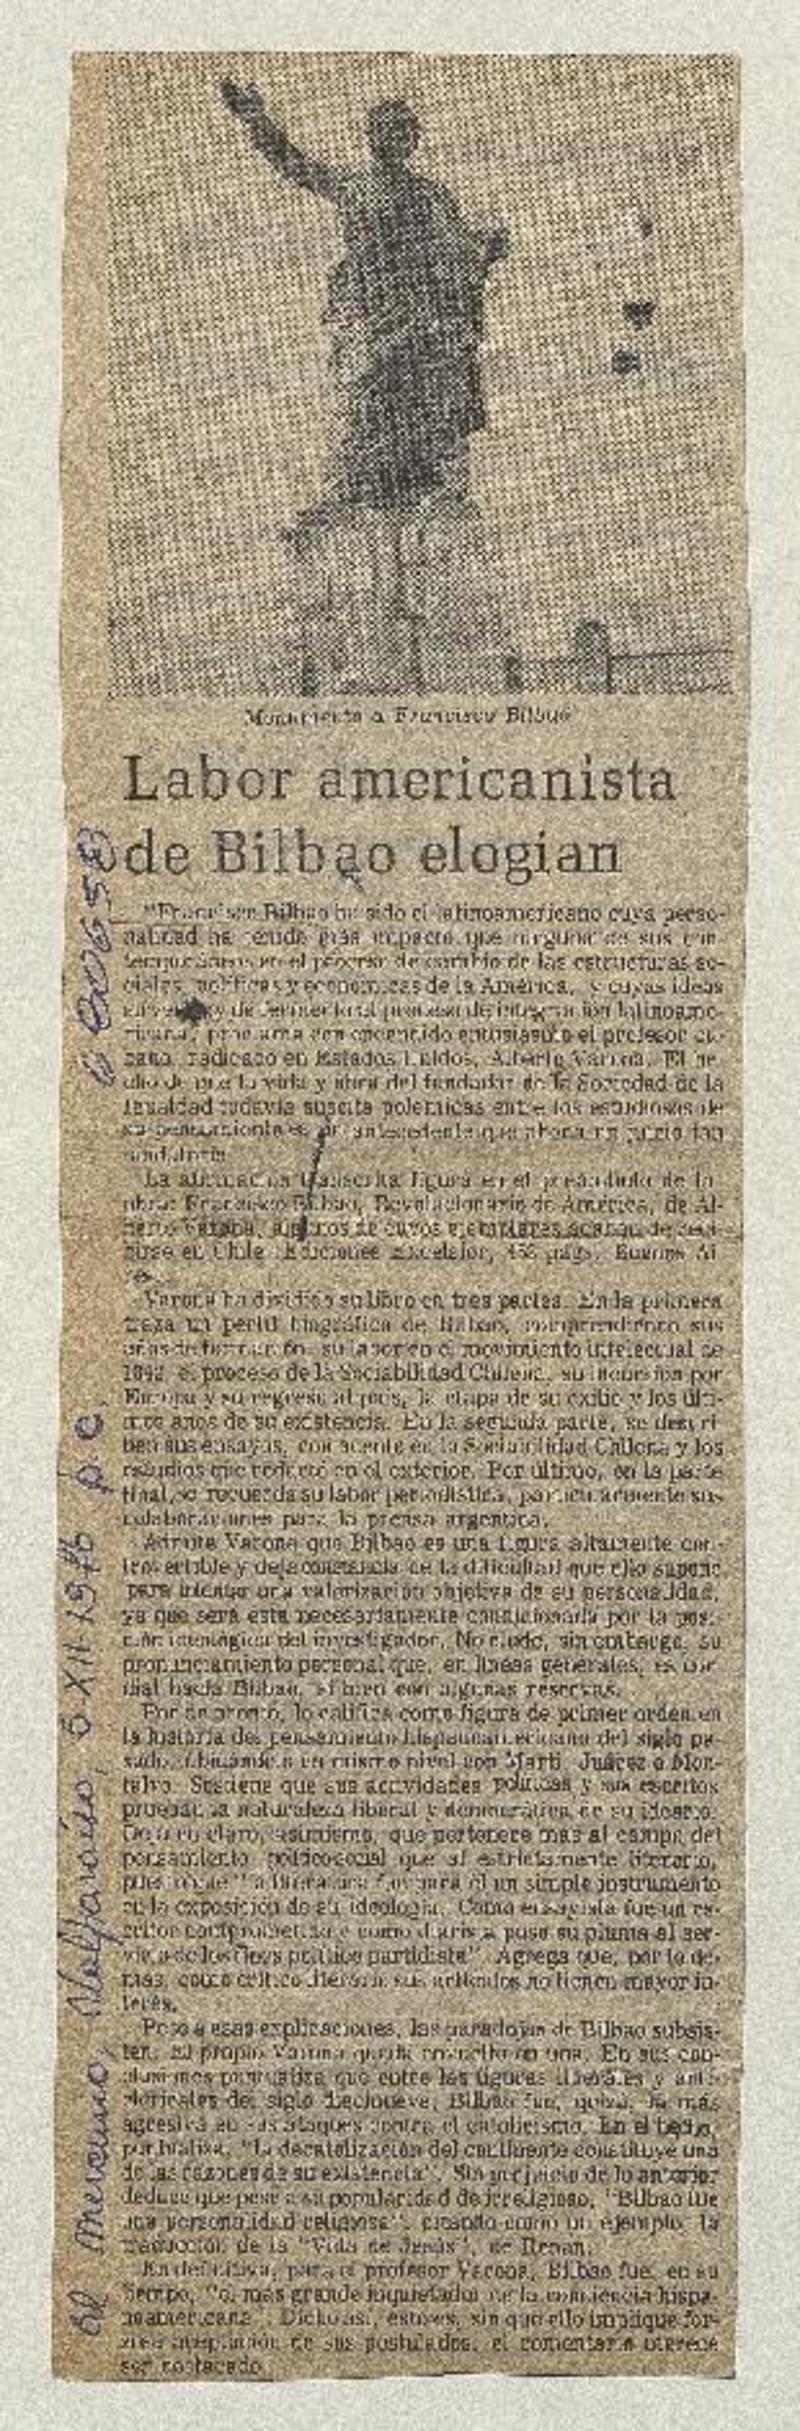 Monumento a Francisco Bilbao
Labor americanista
de Bilbao elogian
"Francisco Bilbao ha sido el latinoamericano cuya perso-
nalidad ha tenido más impacto que ninguno de sus con-
temporáneos en el proceso de cambio de las estructuras so-
ciales, políticas y económicas de la América, y cuyas ideas
y de fermento al proceso de integración latinoame-
ricana", proclama con encendido entusiasmo el profesor cu-
bano, radicado en Estados Unidos, Alberto Varona. El he-
cho de que la vida y obra del fundador de la Sociedad de la
Igualdad todavía suscita polémicas entre los estudiosos de
su pensamiento es un antecedente que abona un juicio tan
La afirmación transcrita figura en el preámbulo de la
obra: Francisco Bilbao, Revolucionario de América, de Al-
berto Varona, algunos de cuyos ejemplares acaban de reci-
birse en Chile (Ediciones Excelsior, págs. Buenos Ai-
res).
Varona ha dividido su libro en tres partes. En la primera
traza un perfil biográfico de Bilbao, comprendiendo sus
años de formación, su labor en el movimiento intelectual de
1842, el proceso de la Sociabilidad Chilena, su incursión por
Europa y su regreso al país, la etapa de su exilio y los últi-
mos años de su existencia. En la segunda parte, se descri-
ben sus ensayos, con acento en la Sociabilidad Chilena y los
estudios que redactó en el exterior. Por último, en la parte
final, se recuerda su labor periodística, particularmente sus
colaboraciones para la prensa argentina.
Admite Varona que Bilbao es una figura altamente con-
trovertible y deja constancia de la dificultad que ello supone
para intentar una valorización objetiva de su personalidad,
ya que será ésta necesariamente condicionada por la posi-
ción ideológica del investigador. No elude, sin embargo, su
pronunciamiento personal que, en líneas generales, es cor-
dial hacia Bilbao, si bien con algunas reservas.
Por de pronto, lo califica como figura de primer orden en
la historia del pensamiento hispanoamericano del siglo pa-
sado, ubicándolo en mismo nivel con Martí, Juárez o Mon-
talvo. Sostiene que sus actividades políticas y sus escritos
prueban la naturaleza liberal y democrática de su ideario.
Deja en claro, asimismo, que pertenece más al campo del
pensamiento político-social que al estrictamente literario,
puesto que "la literatura fue para él un simple instrumento
en la exposición de su ideología. Como ensayista fue un es-
critor comprometido y como diarista puso su pluma al ser-
vicio de los fines político partidista". Agrega que, por lo de-
más, como crítico literario sus artículos no tienen mayor in-
terés.
Pese a esas explicaciones, las paradojas de Bilbao subsis-
ten. El propio Varona queda envuelto en una. En sus con-
clusiones puntualiza que entre las figuras liberales y anti-
clericales del siglo diecinueve, Bilbao fue, quizá, la más
agresiva en sus ataques contra el catolicismo. En el hecho,
puntualiza, "la decatolización del continente constituye una
de las razones de su existencia". Sin perjuicio de lo anterior
deduce que pese a su popularidad de irreligioso, "Bilbao fue
una personalidad religiosa", citando como un ejemplo, la
traducción de la "Vida de Jesús", de Renan.
En definitiva, para el profesor Varona, Bilbao fue, en su
tiempo, "el más grande inquietador de la conciencia hispa-
noamericana". Dicho así, esto es, sin que ello implique for-
zosa aceptación de sus postulados, el comentario merece
ser destacado.
El Mercurio, Valparaíso, 5-XII-1976 p. c.